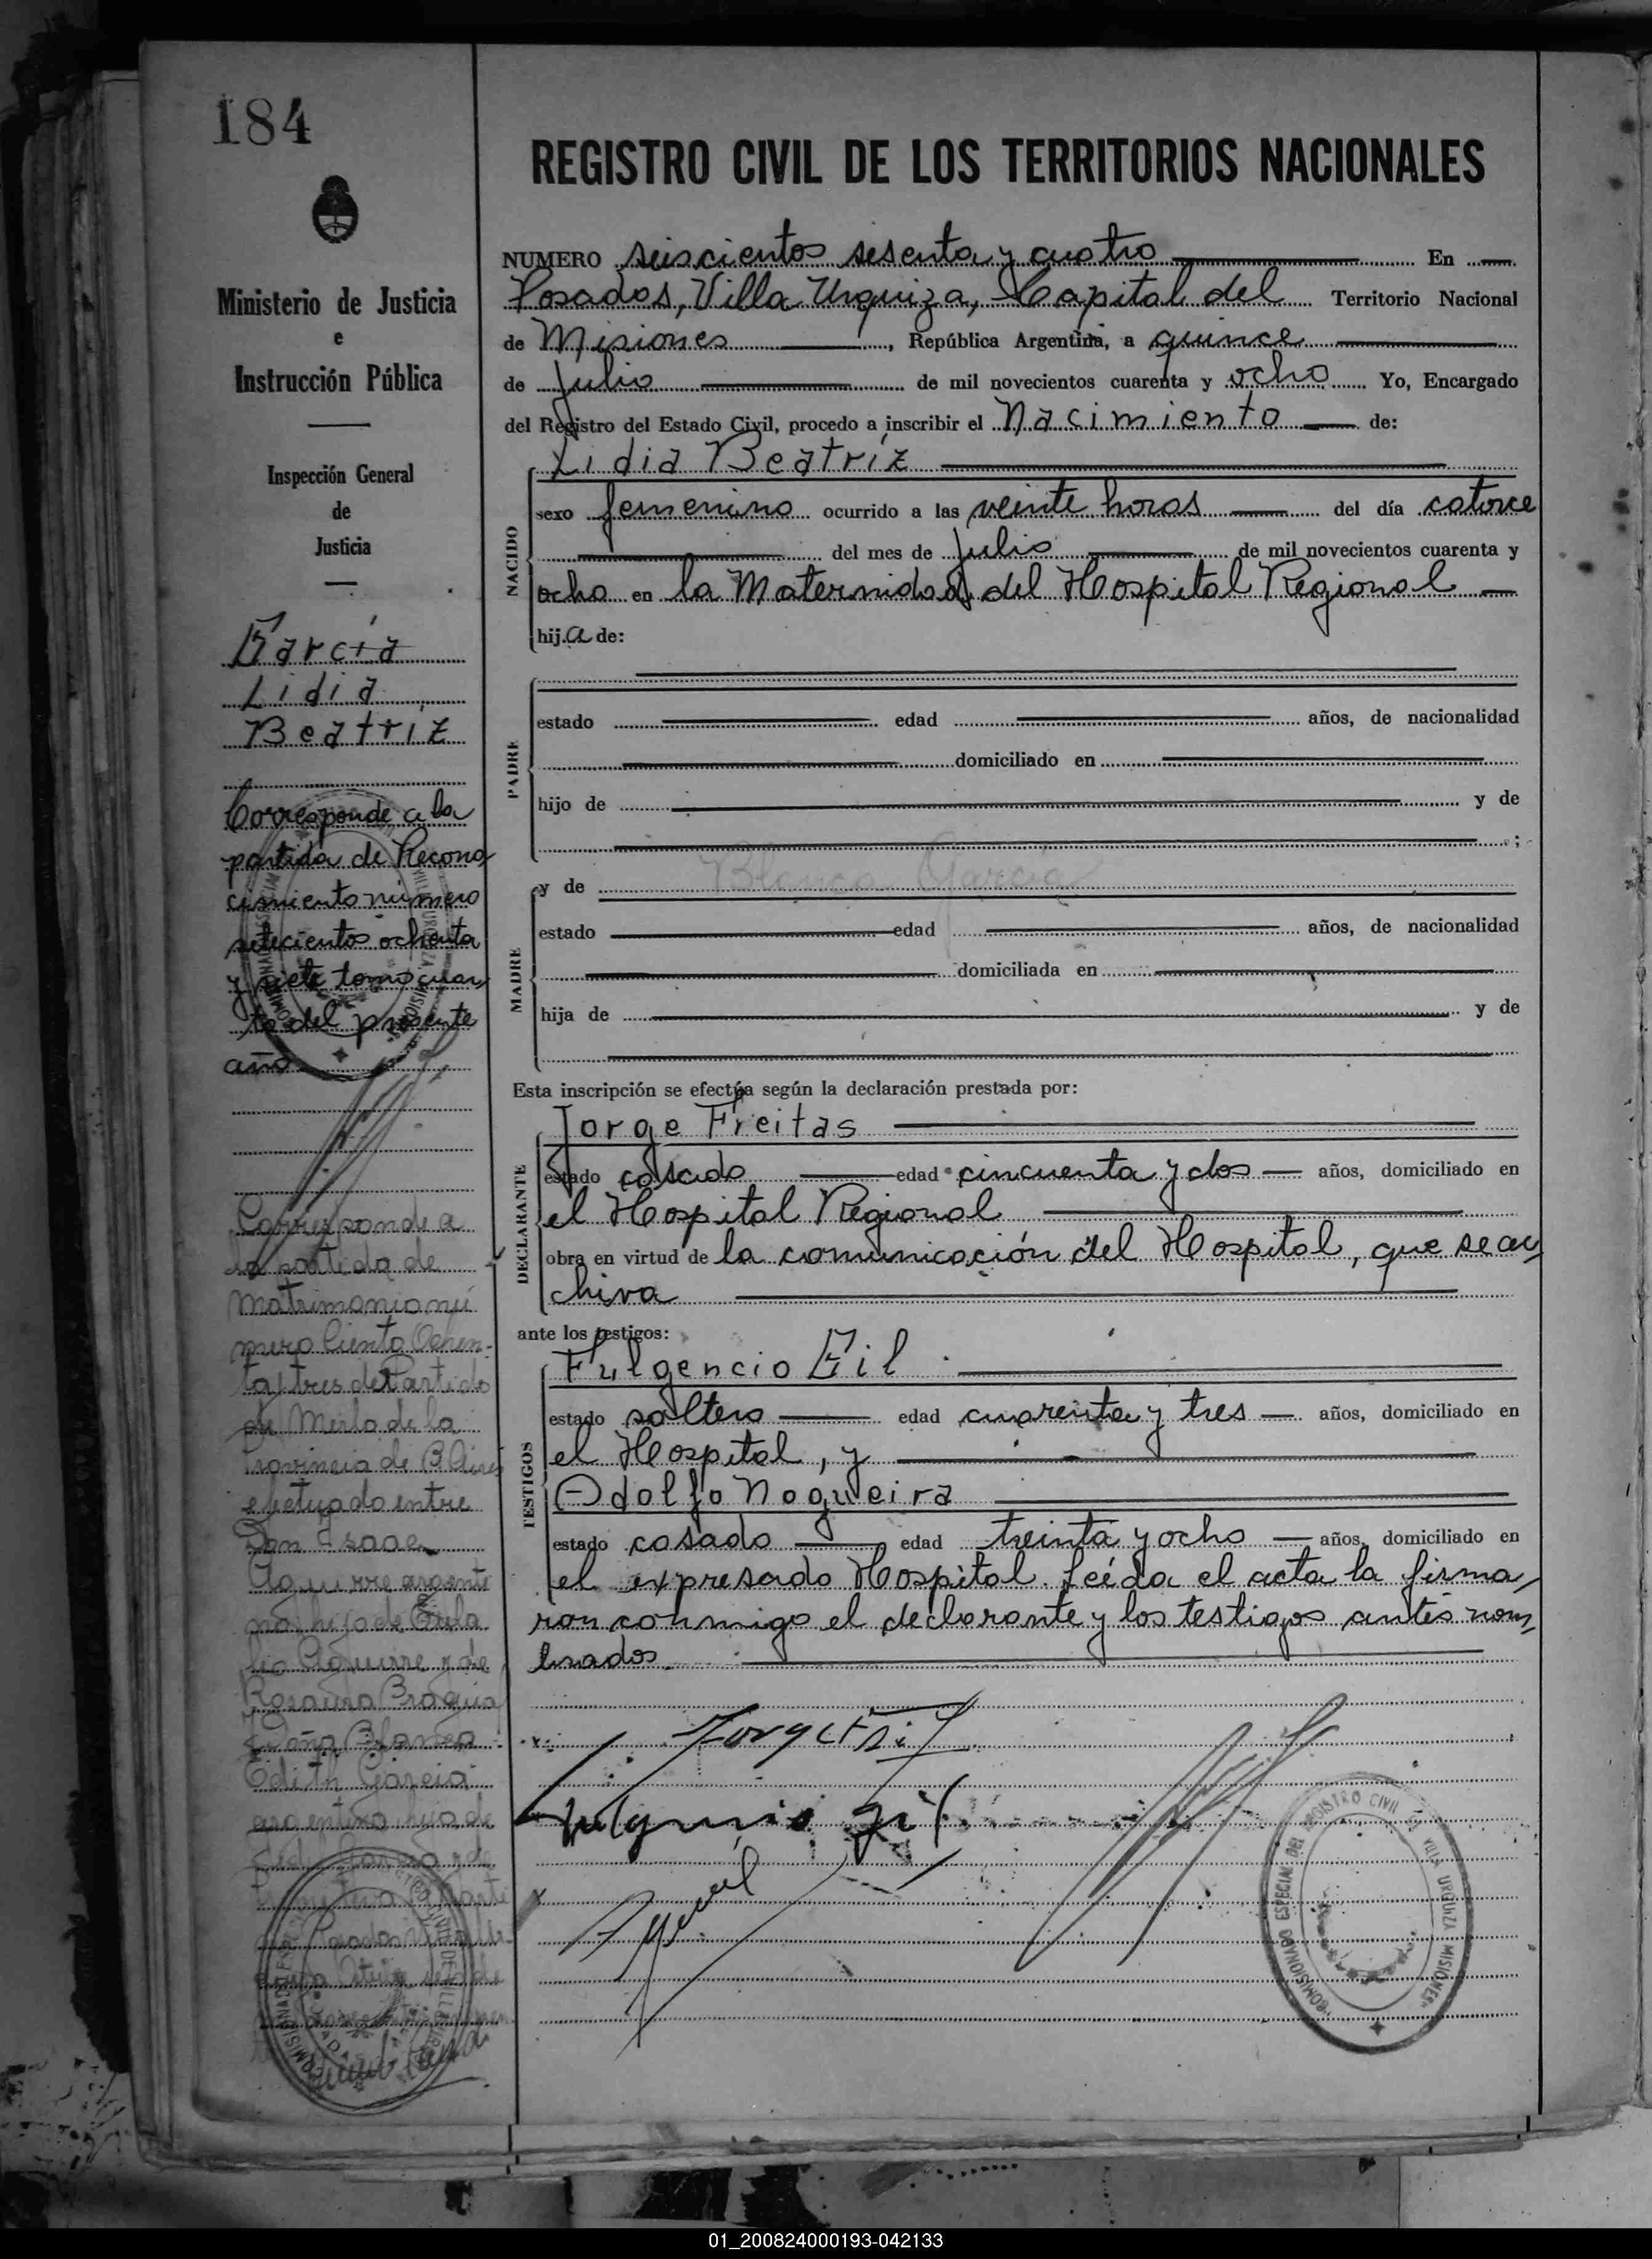 184
Ministerio de Justicia
e
Instrucción Pública
Inspección General
de
Justicia
García
Lidia
Beatríz
Corresponde a la
partida de Recono
cimiento número
setecientos ochenta
y siete tomo cuar,
to del presente
año
Corresponde a
la partida de
matrimonio nú
mero Ciento Ochen-
ta y tres del Partido
de Merlo de la
Provincia de B. Aires
efectuado entre
Don Isaac
Aguirre argenti
no, hijo de
Aguirre y de
Rosaura
Doña Blanca
Edith García
argentina hija de
García y de
REGISTRO CIVIL DE LOS TERRITORIOS NACIONALES
NUMERO seiscientos sesenta y cuatro En
Posadas, Villa Urquiza, Capital del Territorio Nacional
de Misiones, República Argentina, a quince
de Julio de mil novecientos cuarenta y ocho Yo, Encargado
del Registro del Estado Civil, procedo a inscribir el Nacimiento de:
Lidia Beatríz
NACIDO
sexo femenino ocurrido a las veinte horas del día catorce
del mes de Julio de mil novecientos cuarenta y
ocho en la Maternidad del Hospital Regional
hij.a de:
PADRE
estado edad años, de nacionalidad
domiciliado en
hijo de y de
;
MADRE
y de Blanca García
estado edad años, de nacionalidad
domiciliada en
hija de y de
Esta inscripción se efectúa según la declaración prestada por:
DECLARANTE
Jorge Freitas
estado casado edad cincuenta y dos años, domiciliado en
el Hospital Regional
obra en virtud de la comunicación del Hospital, que se ar,
chiva
ante los testigos:
TESTIGOS
Fulgencio Gil
estado soltero edad cuarenta y tres años, domiciliado en
el Hospital, y
Adolfo Nogueira
estado casado edad treinta y ocho años, domiciliado en
el expresado Hospital. Leída el acta la firma,
ron conmigo el declarante y los testigos antes nom,
brados.
Fulgencio Gil
COMISIONADO ESPECIAL DEL REGISTRO CIVIL VILLA URQUIZA MISIONES
01_200824000193-042133